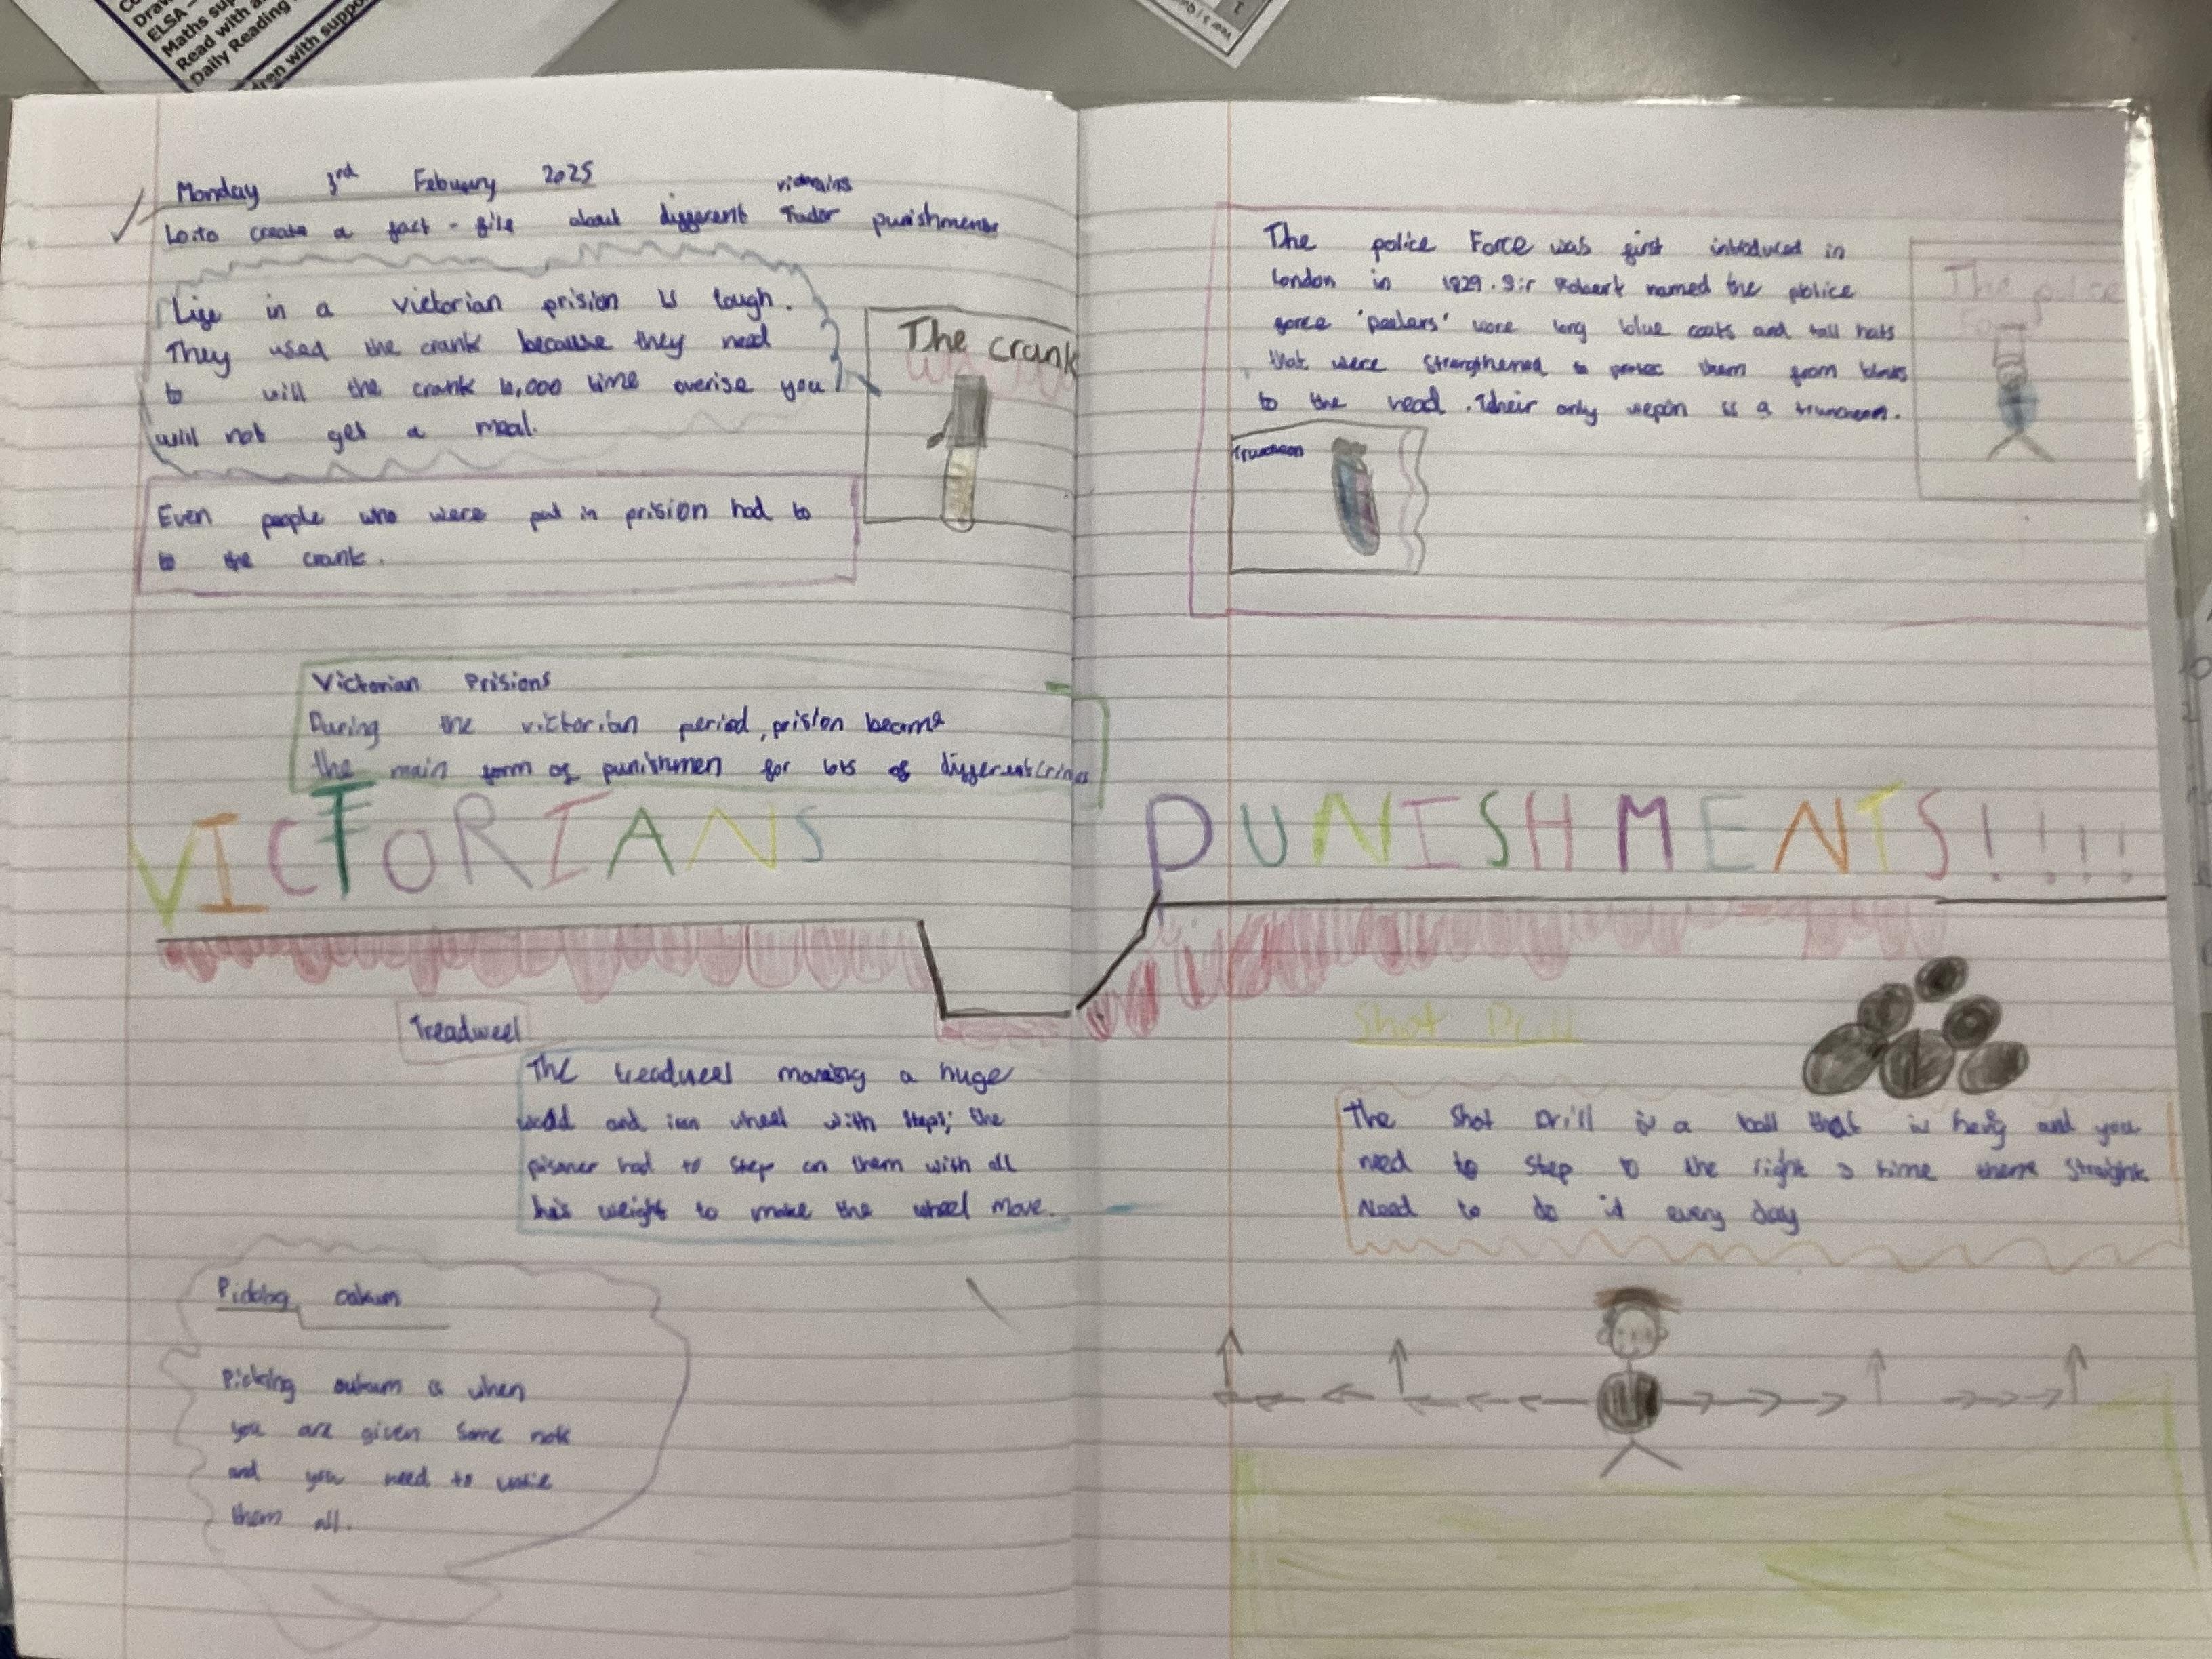 Draw
ELSA -
Maths sup
Read with a
Daily Reading
dren with suppo
Monday 3rd Febuary 2025
Lo:to create a fact - file about different Tudor punishments
Life in a victorian prision is tough.
They used the crank because they need
to will the crank 10,000 time overise you
will not get a meal.
The crank
Even people who were put in prision had to
to the crank.
Victorian Prisions
During the victorian period, prision became
the main form of punishmen for lots of different crimes
The police Force was first introduced in
London in 1829. Sir Robert named the police
force 'peelers' wore long blue coats and tall hats
that were strengthened to protec them from blows
to the head. Their only wepon is a truncheon.
The police
Truncheon
VICTORIANS PUNISHMENTS!!!!
Treadweel
The treadweel a huge
wood and iron wheel with steps; the
pisoner had to step on them with all
his weight to make the wheel move.
Picking oakum
Picking is when
you are given some
and you need to
them all.
Shot Drill
The Shot Drill is a ball that is hevy and you
need to step to the right 3 time
need to do it every day